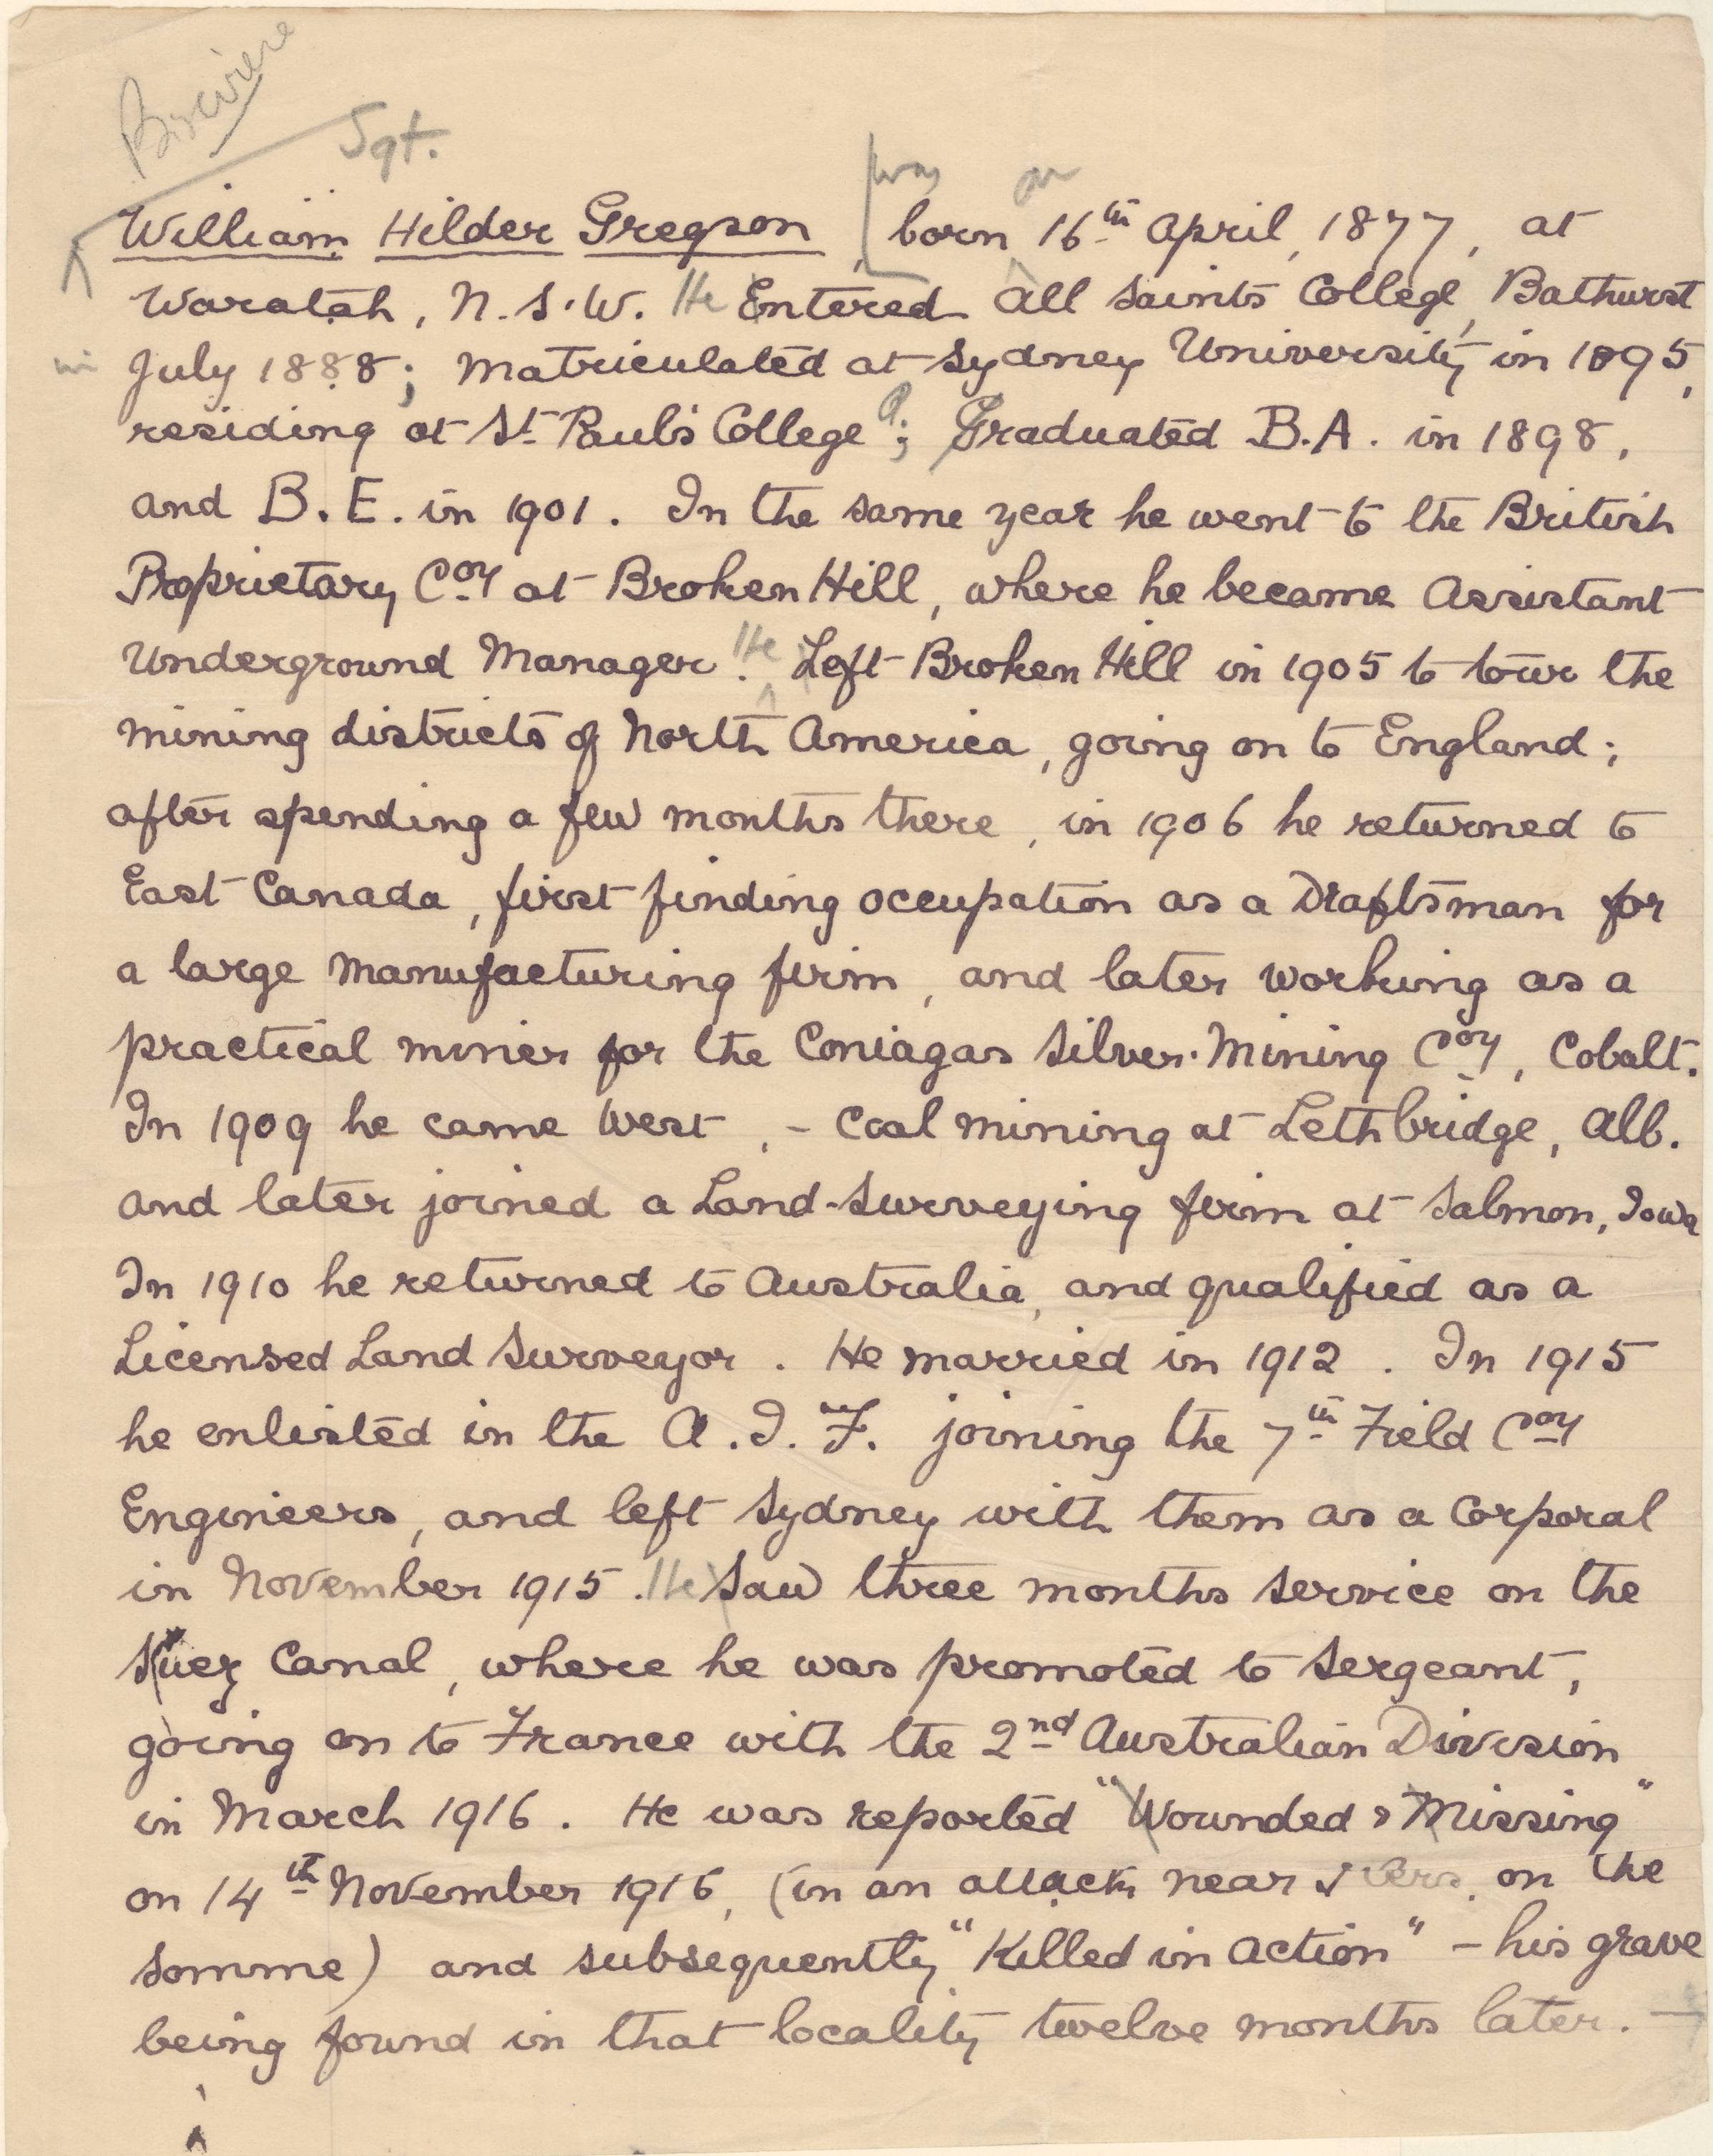 Sgt.
was on
William Hilder Gregson, born 16th April, 1877, at
Waratah, N.S.W. He Entered All Saints College, Bathurst
in July 1888; Matriculated at Sydney University in 1895,
residing at St Paul's College; Graduated B.A. in 1898,
and B.E. in 1901. In the same year he went to the British
Proprietary Coy at Broken Hill, where he became Assistant
Underground Manager. He Left Broken Hill in 1905 to tour the
mining districts of North America, going on to England;
after spending a few months there, in 1906 he returned to
East Canada, first finding occupation as a Draftsman for
a large Manufacturing firm, and later working as a
practical miner for the Coniagas Silver-Mining Coy, Cobalt.
In 1909 he came West, - Coal Mining at Lethbridge, Alb.
and later joined a Land-Surveying firm at Salmon, Iowa
In 1910 he returned to Australia, and qualified as a
Licensed Land Surveyor. He married in 1912. In 1915
he enlisted in the A.I.F. joining the 7th Field Coy
Engineers, and left Sydney with them as a Corporal
in November 1915. He Saw three months service on the
Suez Canal, where he was promoted to Sergeant,
going on to France with the 2nd Australian Division
in March 1916. He was reported "Wounded & Missing"
on 14th November 1916, (in an attack near on the
Somme) and subsequently "Killed in Action" - his grave
being found in that locality twelve months later. -